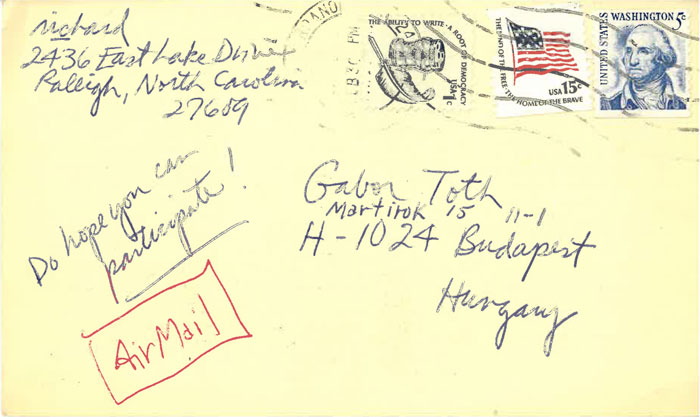 richard
2436 East Lake Drive
Raleigh, North Carolina
27609
THE ABILITY TO WRITE · A ROOT OF DEMOCRACY
USA 1c
THE LAND OF THE FREE THE HOME OF THE BRAVE
USA 15c
UNITED STATES
WASHINGTON 5c
PM
24
Do hope you can
participate!
Gabor Toth
Martirok 15 11-1
H-1024 Budapest
Hungary
Air Mail